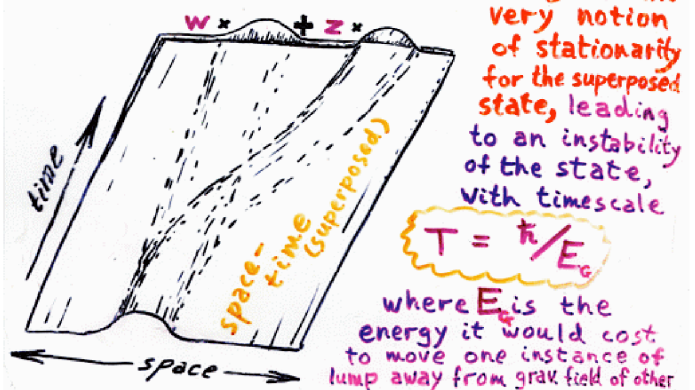 w × + z ×
time
space-
time
(superposed)
space
very notion
of stationarity
for the superposed
state, leading
to an instability
of the state,
with timescale
T = ħ/E_G
where E_G is the
energy it would cost
to move one instance of
lump away from grav. field of other